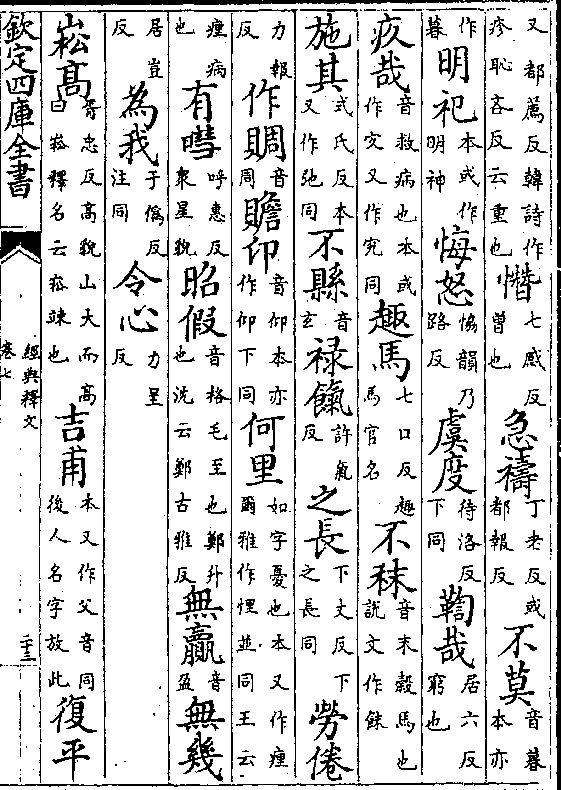 又都薦反韓詩作疹恥吝反云重也憯七感反曾也急禱丁老反或都報反不莫音暮本亦
作暮明祀本或作明神悔怒協韻乃路反虞度待洛反下同鞫哉居六反窮也
疚哉音救病也本或作宄又作究同趣馬七口反趣馬官名不秣音末穀馬也說文作䬴
施其式氏反本又作弛同不縣音玄祿餼許氣反之長下丈反下之長同勞倦
力報反作賙音周瞻卬音仰本亦作仰下同何里如字憂也本又作瘇爾雅作悝並同王云
瘇病也有嘒呼惠反衆星貌昭假音格毛至也鄭升也沈云鄭古雅反無贏音盈無幾
居豈反為我于偽反注同令心力呈反
崧高胥忠反高貌山大而高曰崧釋名云崧竦也吉甫本又作父音同後人名字放此復平
欽定四庫全書
經典釋文
卷七
二十三